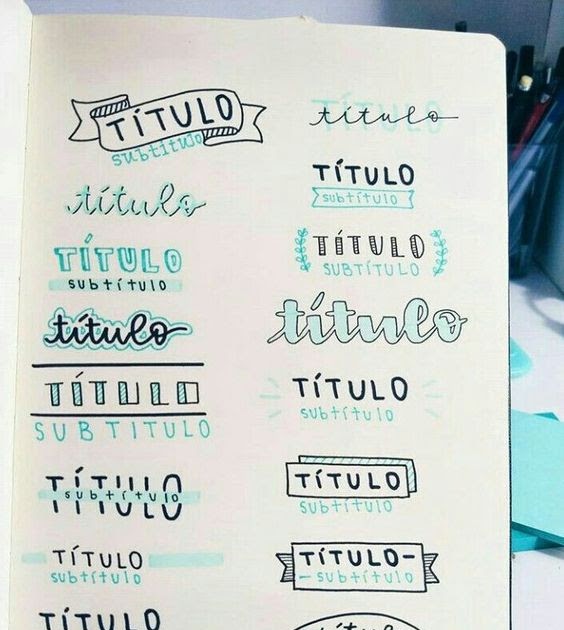 TÍTULO
subtítulo
título
TÍTULO
subtítulo
título
TÍTULO
SUBTITULO
TÍTULO
subtítulo
TÍTULO
subtítulo
TÍTULO
TÍTULO
título
TÍTULO
subtítulo
TÍTULO
SUBTÍTULO
título
TÍTULO
subtítulo
TÍTULO
subtítulo
TÍTULO-
-subtítulo
título